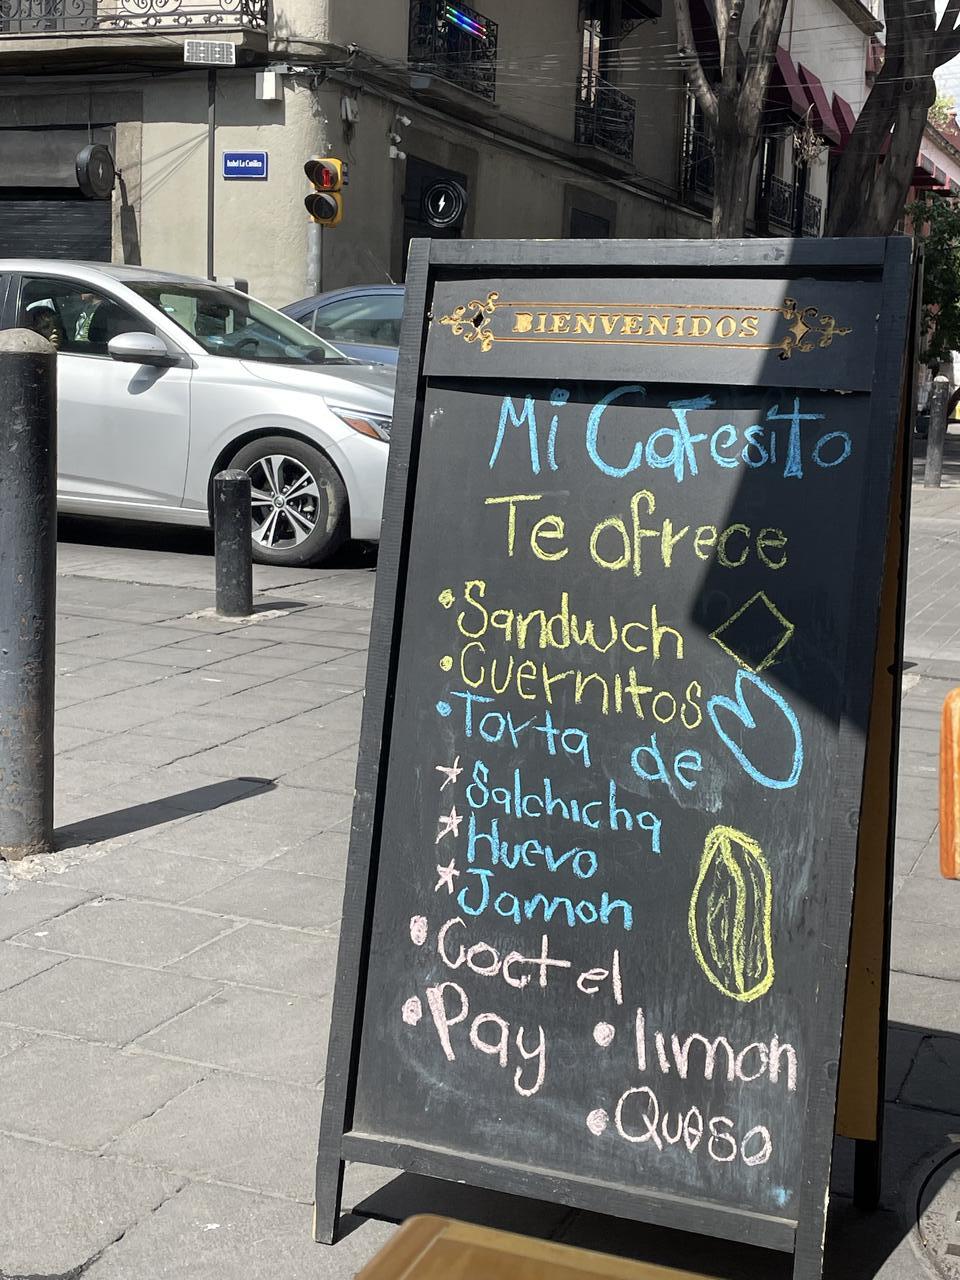 Isabel La Católica
BIENVENIDOS
Mi Cafesito
Te ofrece
•Sandwch
•Cuernitos
•Torta de
*Salchicha
*Huevo
*Jamon
•Coctel
•Pay •limon
•Queso